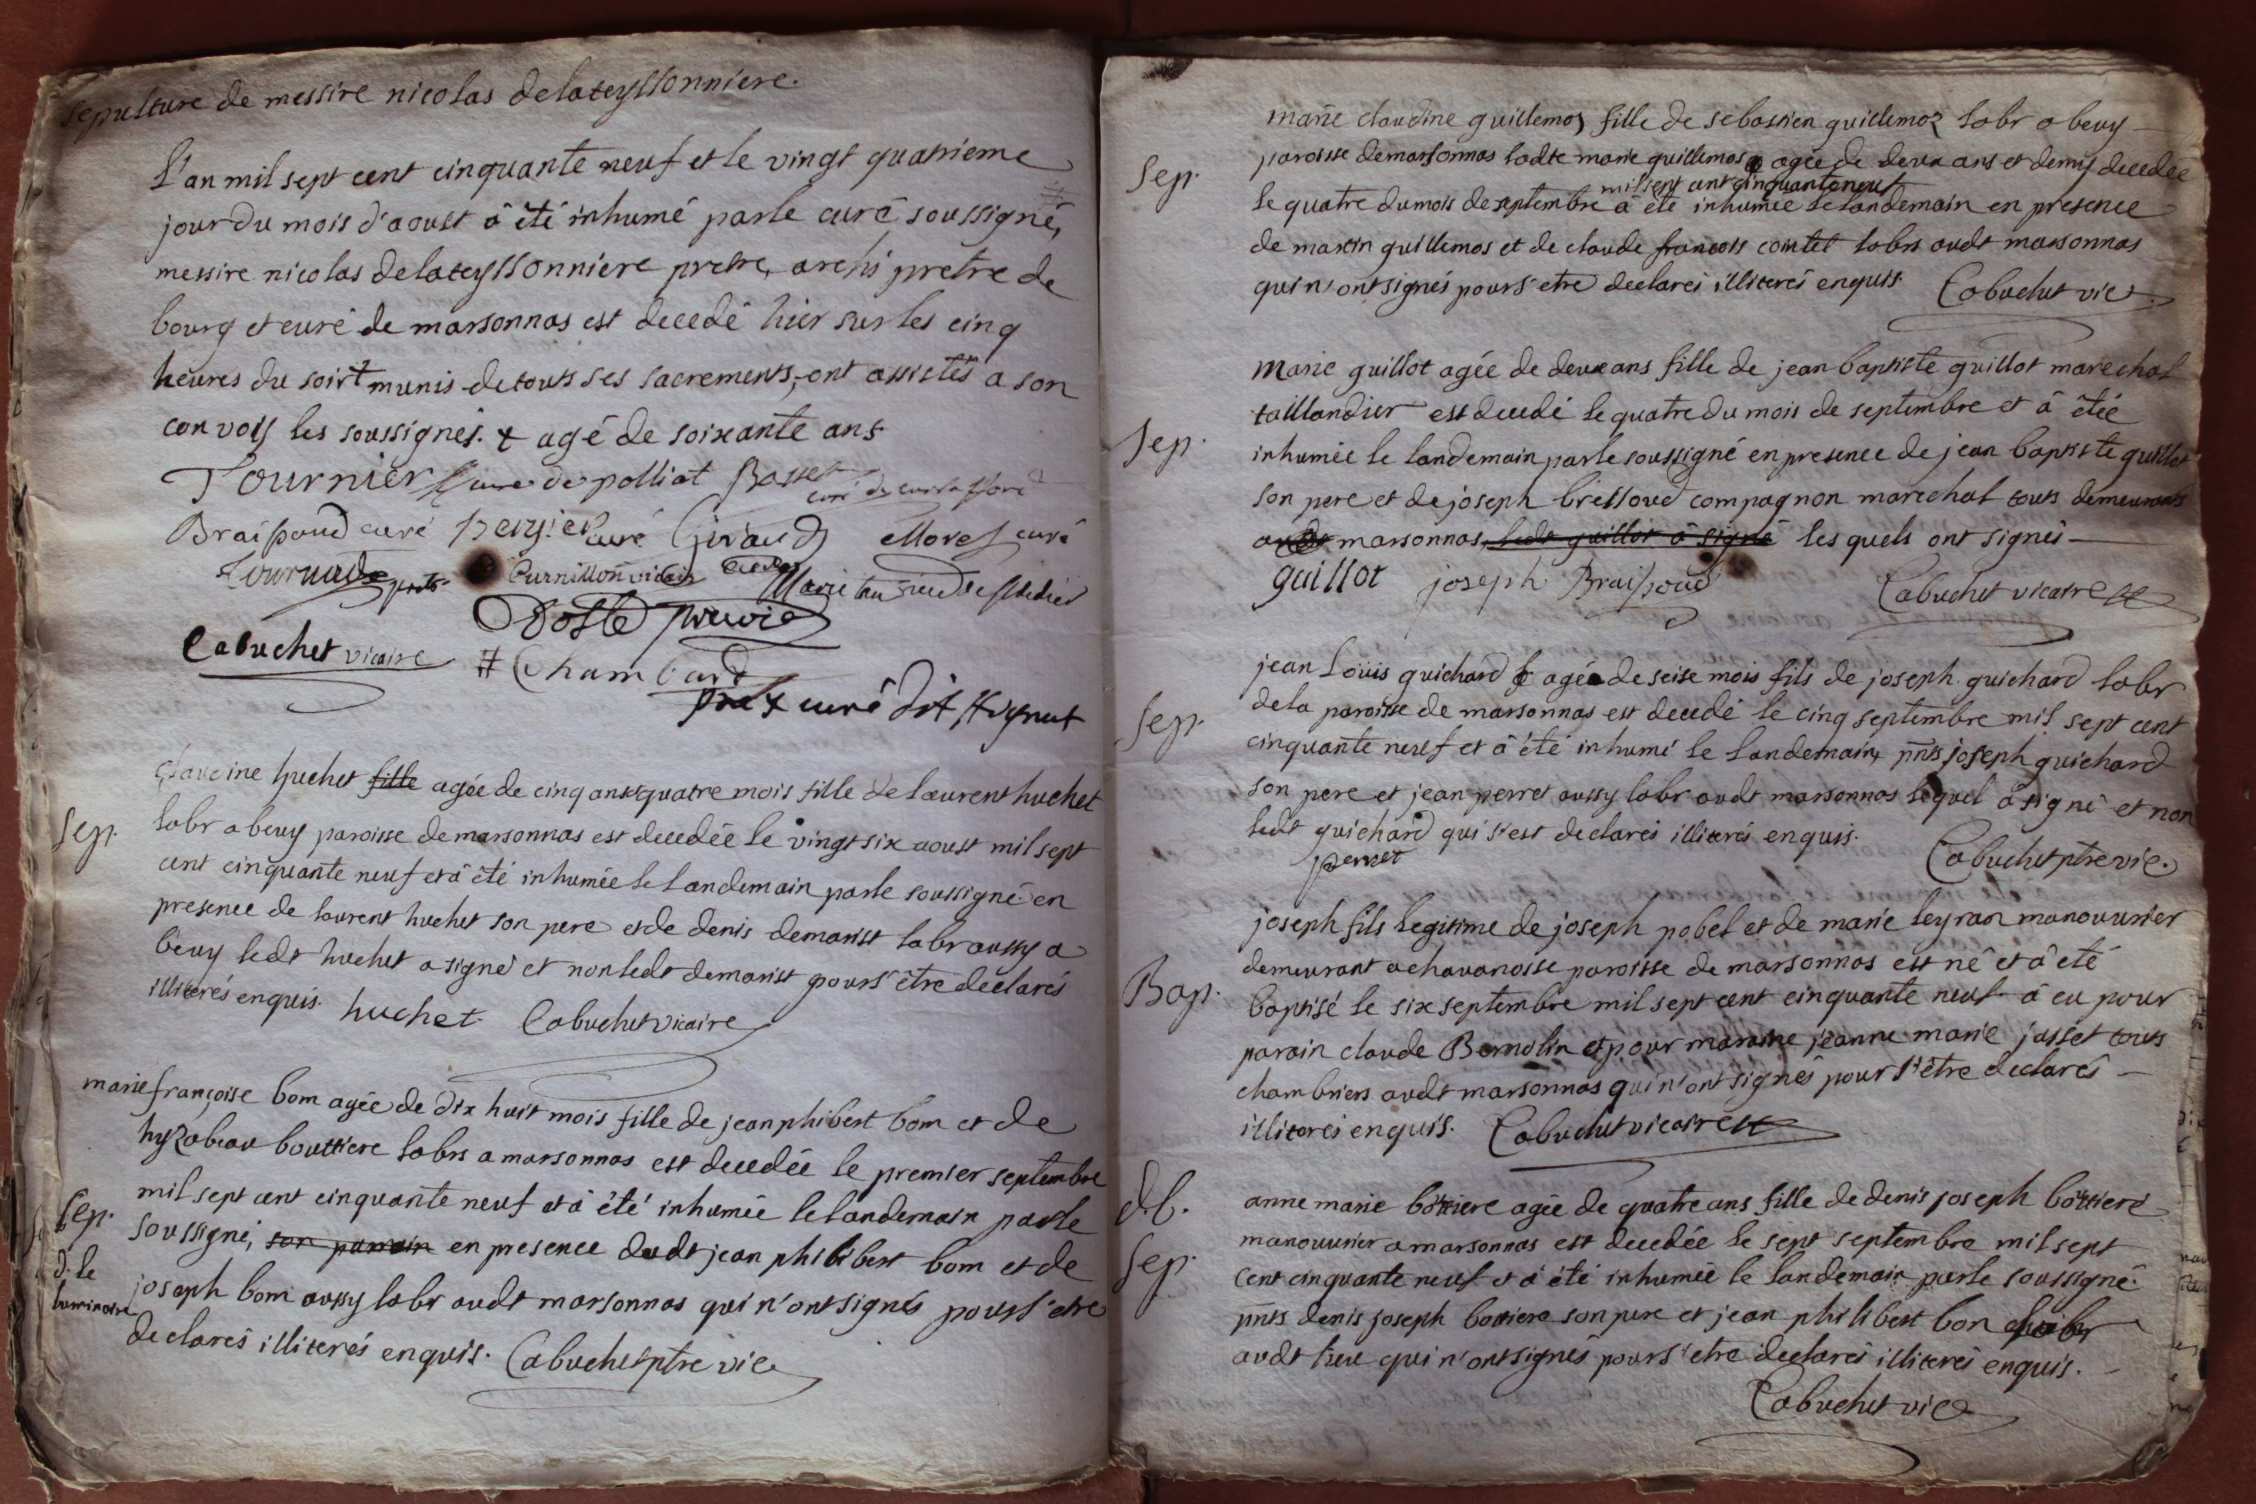 sepulture de messire nicolas delateyssonniere.
L'an mil sept cent cinquante neuf et le vingt quatrieme
jour du mois d'aoust â été inhumé parle curé soussigné,
messire nicolas delateyssonniere pretre, archipretre de
bourg et curé de marsonnas est decedé hier sur les cinq
heures du soir munis de touts ses sacrements, ont assistés a son
convoy les soussignés. + agé de soixante ans
Tournier curé de polliat Basset
Braissoud curé perrier curé Giraud Morel curé
vicaire
Cabuchet vicaire # Chambard
curé
Sep.
claudine huchet fille agée de cinq ans et quatre mois fille de laurent huchet
labr a beuy paroisse de marsonnas est decedée le vingt six aoust mil sept
cent cinquante neuf et â été inhumée le landemain parle soussigné en
presence de laurent huchet son pere et de denis demarist labr aussy a
beuy ledt huchet a signé et non ledt demarist pour s'être declarés
illiterés enquis. huchet Cabuchet vicaire
Sep.
d. le
luminaire
marie françoise bom agée de dix huit mois fille de jean phibert bom et de
hyzabeau bouttiere labrs a marsonnas est decedée le premier septembre
mil sept cent cinquante neuf et â été inhumée le landemain parle
soussigné, son parrain en presence dudt jean philibert bom et de
joseph bom aussy labr audt marsonnas qui n'ont signés pour s'etre
declarés illiterés enquis. Cabuchet ptre vic
Sep.
marie claudine guillemoz fille de sebastien guillemoz labr a beuy
paroisse demarsonnas ladte marie guillemos agée de deux ans et demy decedée
mil sept cent cinquante neuf
le quatre du mois de septembre â été inhumée le landemain en presence
de martin guillemos et de claude francois comtet labrs audt marsonnas
qui n'ont signés pour s'etre declarés illiterés enquis. Cabuchet vic.
Sep.
marie guillot agée de deux ans fille de jean baptiste guillot marechal
taillandier est decedé le quatre du mois de septembre et â étée
inhumée le landemain parle soussigné en presence de jean baptiste guillot
son pere et de joseph bressoud compagnon marechal touts demeurants
audt marsonnas, ledt guillot â signé les quels ont signés
guillot joseph Braissoud Cabuchet vicaire
Sep.
jean Loüis guichard agé de seise mois fils de joseph guichard labr
dela paroisse de marsonnas est decedé le cinq septembre mil sept cent
cinquante neuf et â été inhumé le landemain, pnts joseph guichard
son pere et jean perret aussy labr audt marsonnas lequel â signé et non
ledt guichard qui s'est declarés illiterés enquis.
perret Cabuchet ptre vic.
Bap.
joseph fils legitime de joseph pobel et de marie leyran manouvrier
demeurant a chavanosse paroisse de marsonnas est né et â eté
baptisé le six septembre mil sept cent cinquante neuf â eu pour
parain claude Bernolin et pour maraine jeanne marie josset touts
chambriers audt marsonnas qui n'ont signés pour s'être declarés
illiterés enquis. Cabuchet vicaire
d. l.
Sep.
anne marie bôttiere agée de quatre ans fille de denis joseph bôttiere
manouvrier a marsonnas est decedée le sept septembre mil sept
cent cinquante neuf et â été inhumée le landemain parle soussigné.
pnts denis joseph bottiere son pere et jean philibert bon labr
audt lieu qui n'ont signés pour s'etre declarés illiterés enquis.
Cabuchet vic